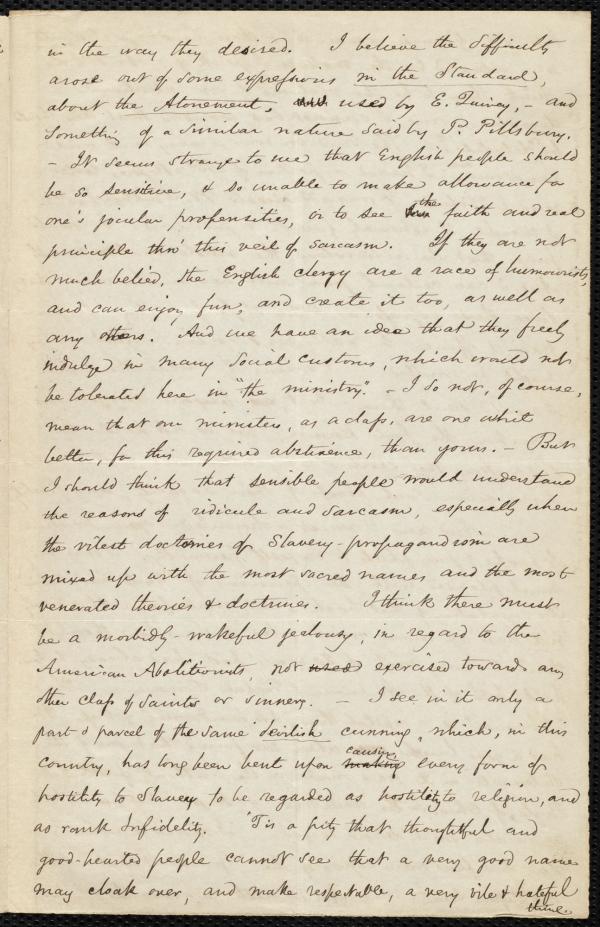 in the way they desired. I believe the difficulty
arose out of some expressions in the Standard,
about the Atonement, used by E. Quincy, – and
something of a similar nature said by P. Pillsbury.
– It seems strange to me that English people should
be so sensitive, & so unable to make allowance for
one's jocular propensities, or to see the faith and real
principle thro' this veil of sarcasm. If they are not
much belied, the English clergy are a race of humourists,
and can enjoy fun, and create it too, as well as
any others. And we have an idea that they freely
indulge in many social customs, which would not
be tolerated here in "the ministry." – I do not, of course,
mean that our ministers, as a class, are one whit
better, for this required abstinence, than yours. – But
I should think that sensible people would understand
the reasons of ridicule and sarcasm, especially when
the vilest doctrines of Slavery-propagandism are
mixed up with the most sacred names and the most
venerated theories & doctrines. I think there must
be a morbidly-wakeful jealousy, in regard to the
American Abolitionists, not used exercised towards any
other class of saints or sinners. – I see in it only a
part & parcel of the same devilish cunning, which, in this
country, has long been bent upon making causing every form of
hostility to Slavery to be regarded as hostility to religion, and
as rank Infidelity. 'Tis a pity that thoughtful and
good-hearted people cannot see that a very good name
may cloak over, and make respectable, a very vile & hateful
thing.